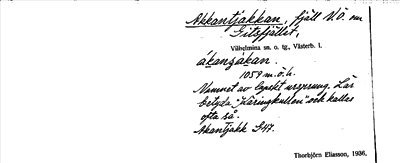 Akkantjakkan, fjäll V.Ö. om
Gitsfjället,
Vilhelmina sn. o. tg., Västerb. l.
ákanʒakan.
1059 m.ö.h.
Namnet av lapskt ursprung. Lär
betyda "Käringkullen" och kallas
ofta så.
Akantjakk S47.
Thorbjörn Eliasson, 1936.